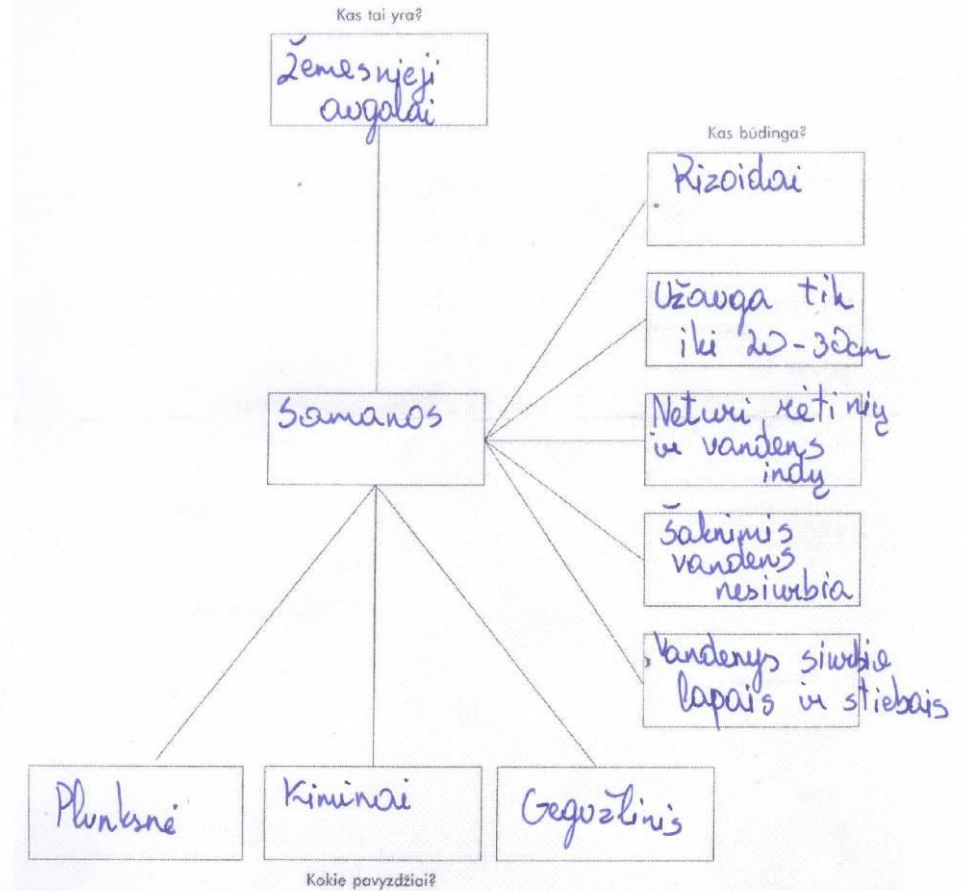 Kas tai yra?
Žemesnieji
augalai
Kas būdinga?
Rizoidai
Užauga tik
iki 20-30cm
Samanos
Neturi rėtinių
ir vandens
indų
Šaknimis
vandens
nesiurbia
Vandenys siurbia
lapais ir stiebais
Plunksnė
Kiminai
Gegužlinis
Kokie pavyzdžiai?